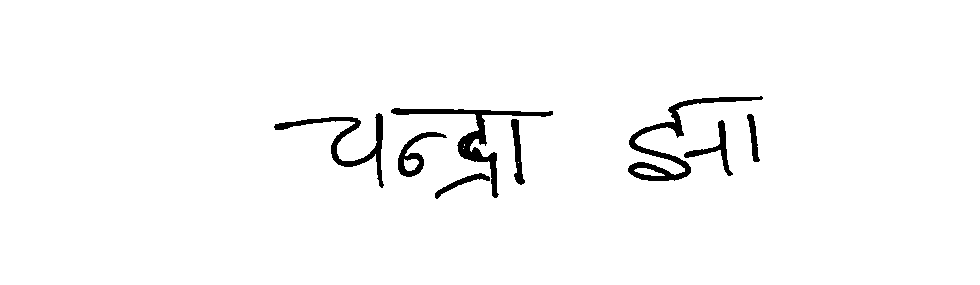 चन्द्रा झा